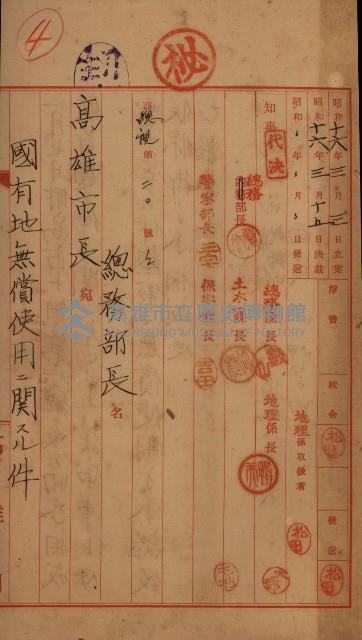 4
秘
昭和十六年三月三日立案
昭和十六年三月十五日決裁
昭和 年 月 日發送
淨書
校合
松田
發送
松田
知事
代決
總務部長
警察部長
總務課長
土木課長
保安課長
吉田
地理係長
地理係取扱者
松田
高總親第二〇號ノ
總務部長名
高雄市長宛
國有地無償使用ニ関スル件
高雄市立歷史博物館
KAOHSIUNG MUSEUM OF HISTORY